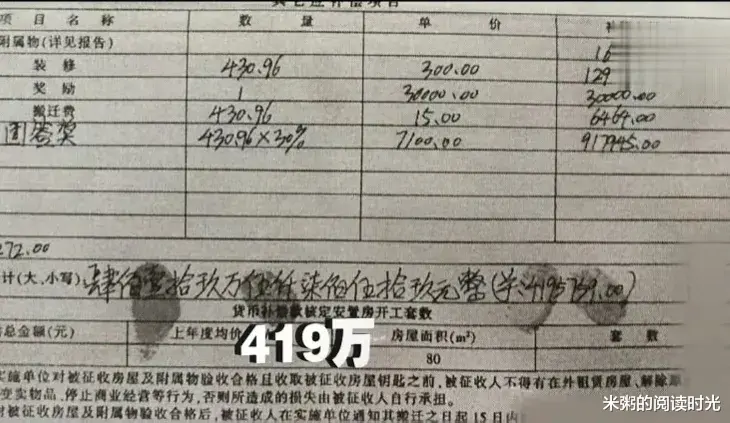 其它应补偿项目
项目名称 数量 单价 补
附属物(详见报告) 16
装修 430.96 300.00 129
奖励 1 30000.00 30000.00
搬迁费 430.96 15.00 6464.00
430.96×30% 7100.00 917945.00
272.00
计(大、小写):肆佰壹拾玖万伍仟柒佰伍拾玖元整(¥:4195759.00)
货币补偿款核定安置房开工套数
总金额(元) 上年度均价 房屋面积(m²) 套数
419万
80
实施单位对被征收房屋及附属物验收合格且收取被征收房屋钥匙之前,被征收人不得有在外租赁房屋、解除
变卖物品、停止商业经营等行为,否则所造成的损失由被征收人自行承担。
对被征收房屋及附属物验收合格后,被征收人在实施单位通知其搬迁之日起15日内
米粥的阅读时光